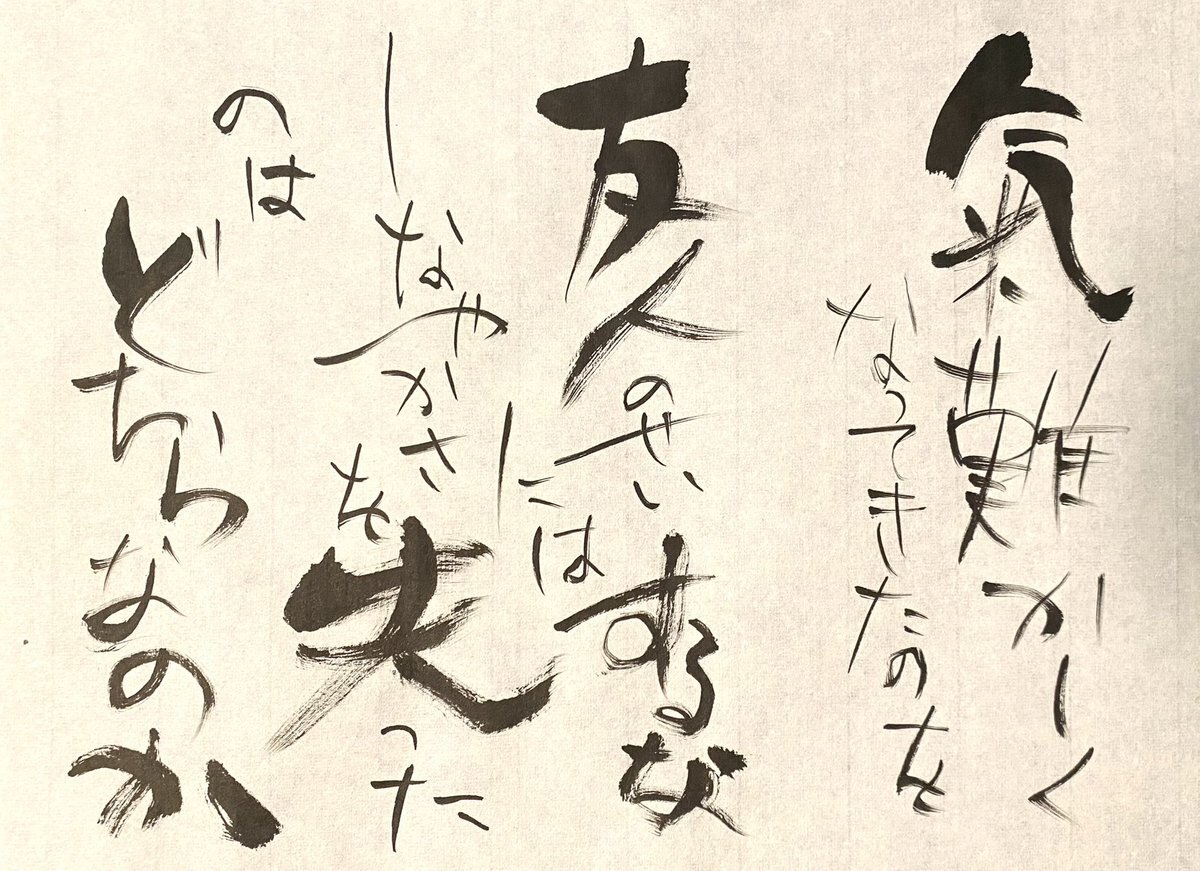 氣難かしく
なってきたのを
友人のせいにはするな
しなやかさを失った
のは
どちらなのか